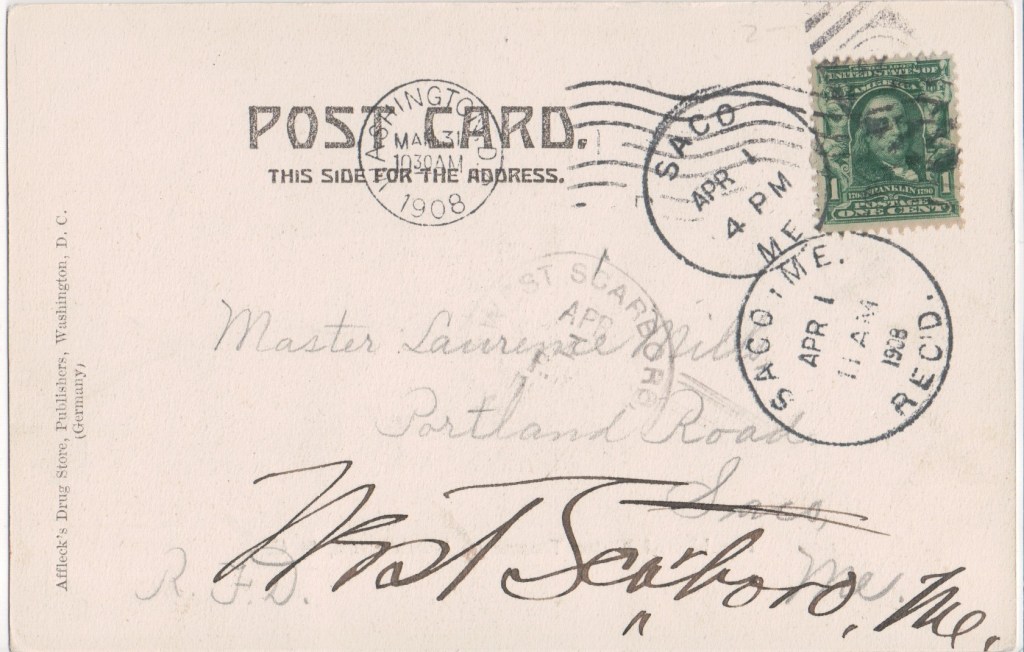 POST CARD.
THIS SIDE FOR THE ADDRESS.
WASHINGTON, D.
MAR 31
10 30 AM
1908
SACO
APR 1
4 PM
ME.
UNITED STATES OF
AMERICA
1706 FRANKLIN 1790
1 POSTAGE 1
ONE CENT
SACO, ME.
APR 1
11 AM
1908
REC'D.
WEST SCARBORO,
APR
Master Laurence Mills
Portland Road
Saco,
R. F. D. Me.
West Scarboro, Me.
Affleck's Drug Store, Publishers, Washington, D. C.
(Germany)